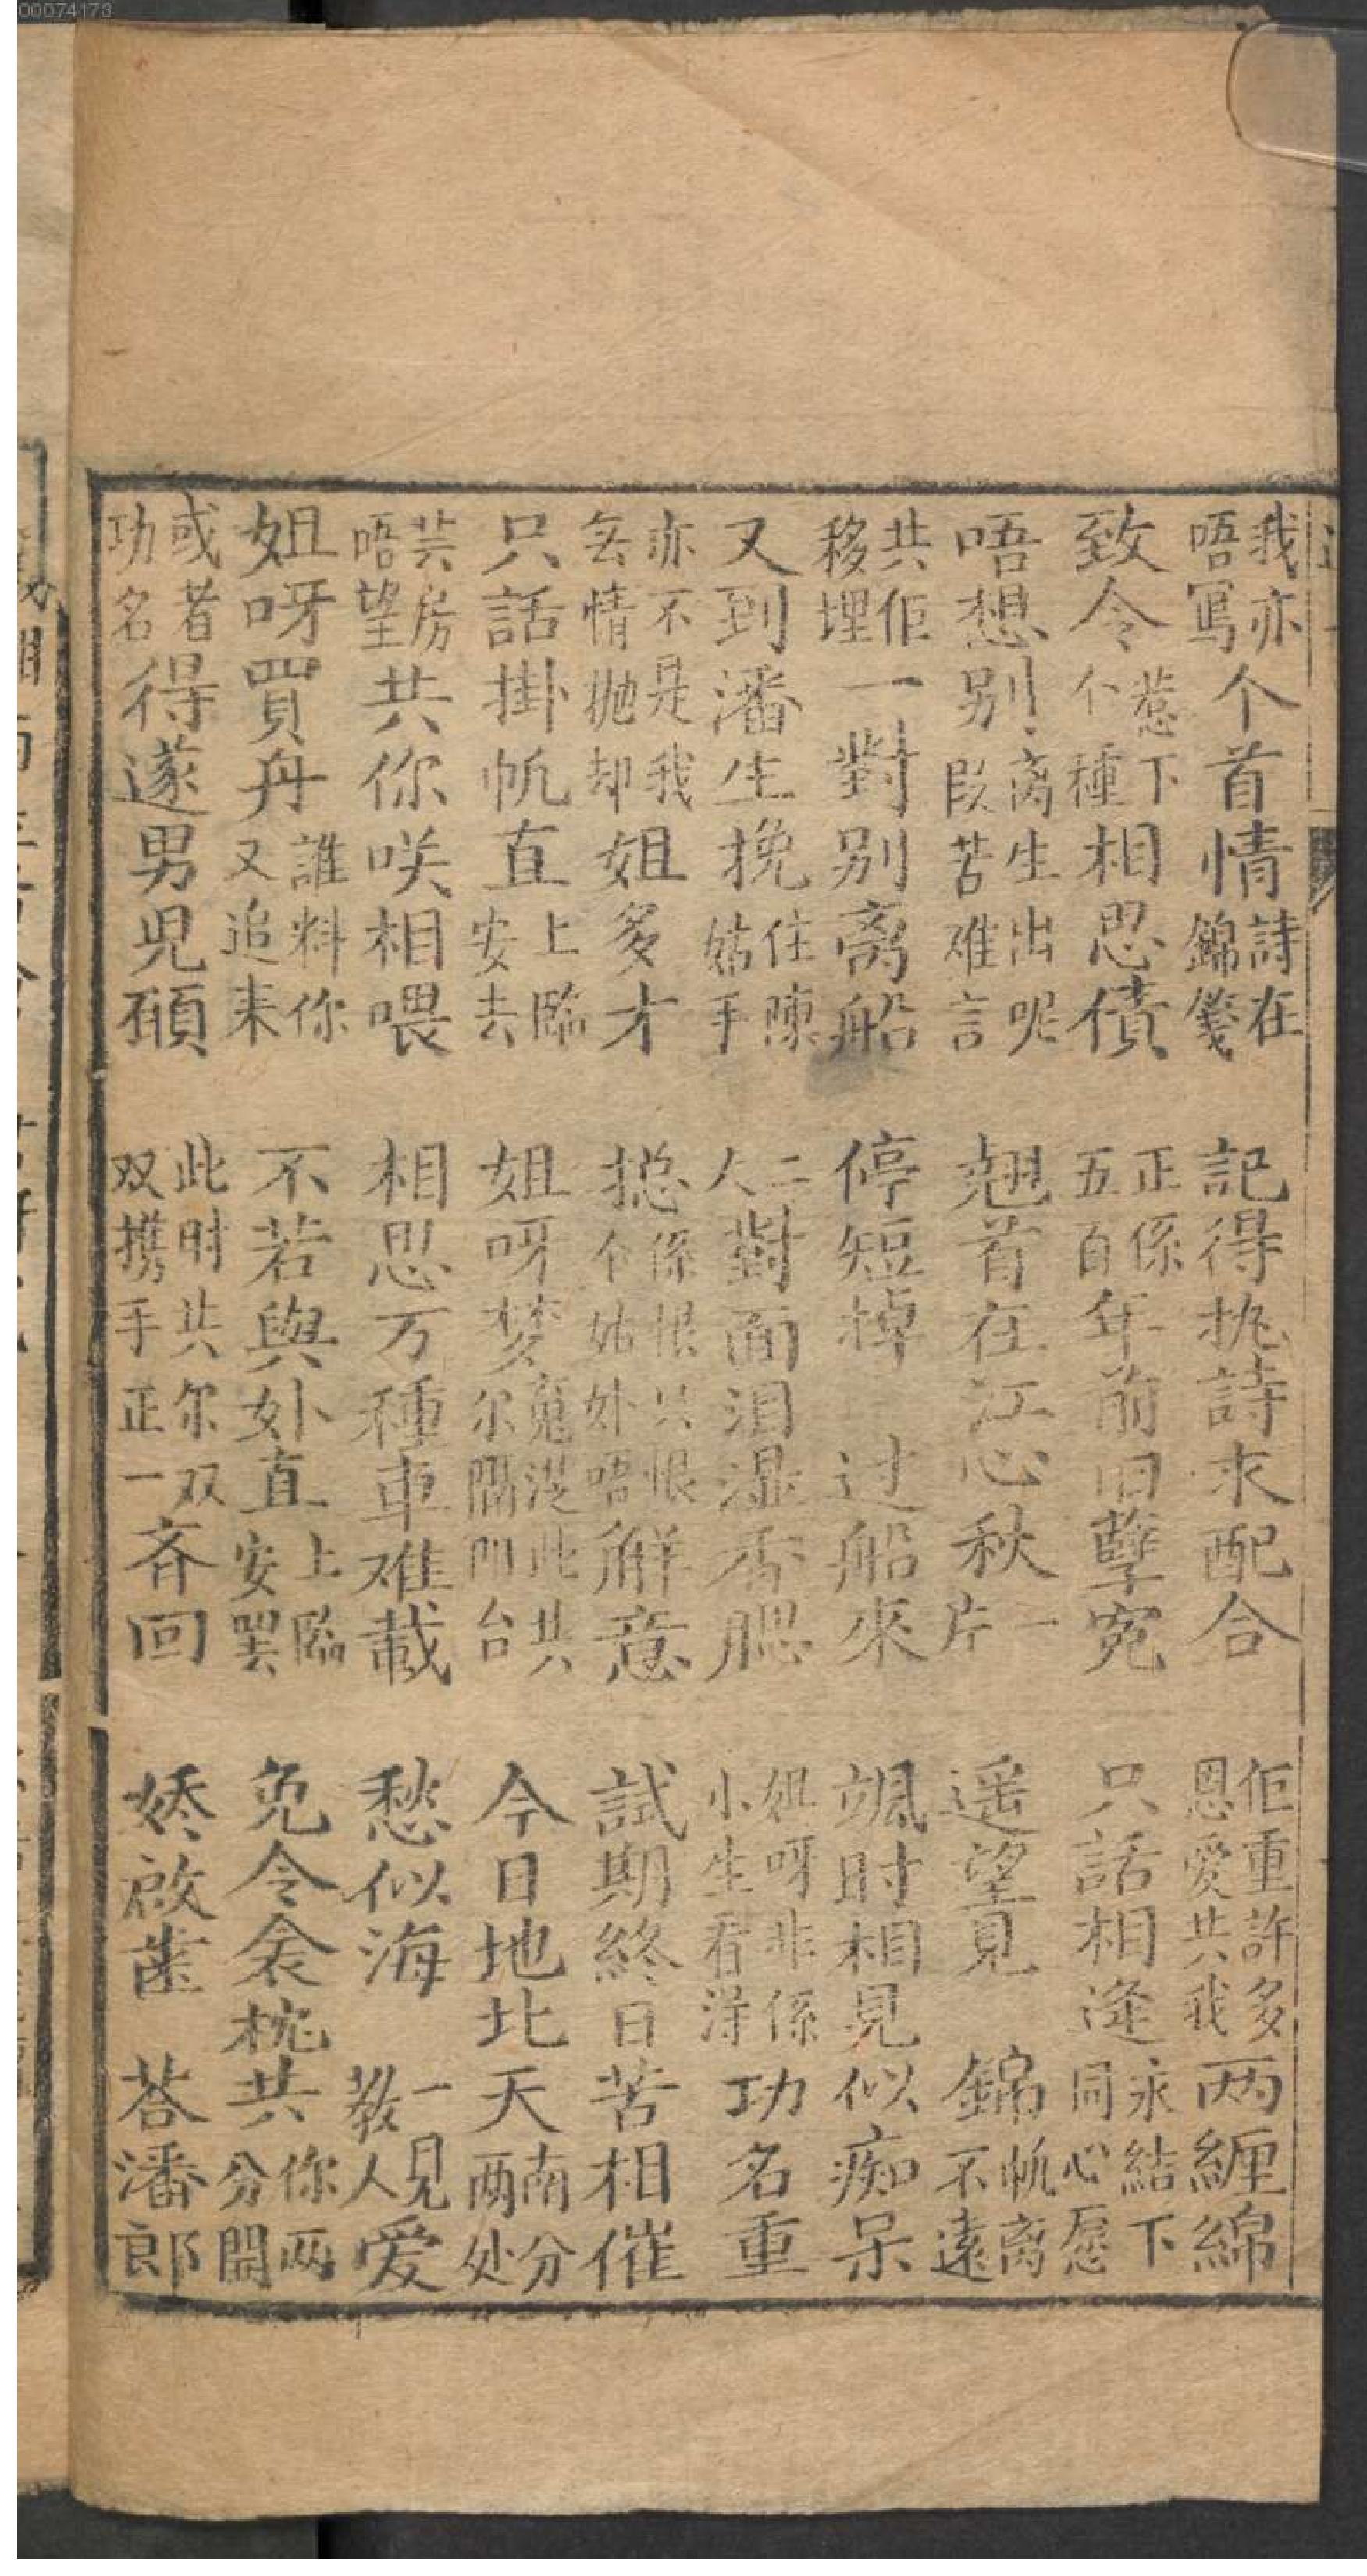 00074173
我亦唔寫个首情詩在錦箋 記得挑詩求配合 佢重許多恩愛共我两纏綿
致令惹下个種相思債 正係五百年前旧孽宛 只話相逢永結下同心愿
唔想别离生出呢段苦难言 翘首在江心秋一片 遥望見 錦帆离不遠
共佢移埋一對别离船 停短掉 过船來 飒时相見似痴呆
又到潘生挽住陳姑手 二人對面泪湿香腮 姐呀非係小生看淂功名重
亦不是我無情抛却姐多才 捴係恨只恨个姑姑唔觧意 試期終日苦相催
只話掛帆直上臨安去 姐呀梦䰟從此共尔隔阳台 今日地北天南分两处
芸房唔望共你咲相喂 相思万種車难載 愁似海 一見教人爱
姐呀買舟誰料你又追来 不若與妳直上臨安罢 免令衾枕共你两分開
或者功名得遂男児願 此时共尔双双携手正一斉回 娇啟齒 荅潘郎